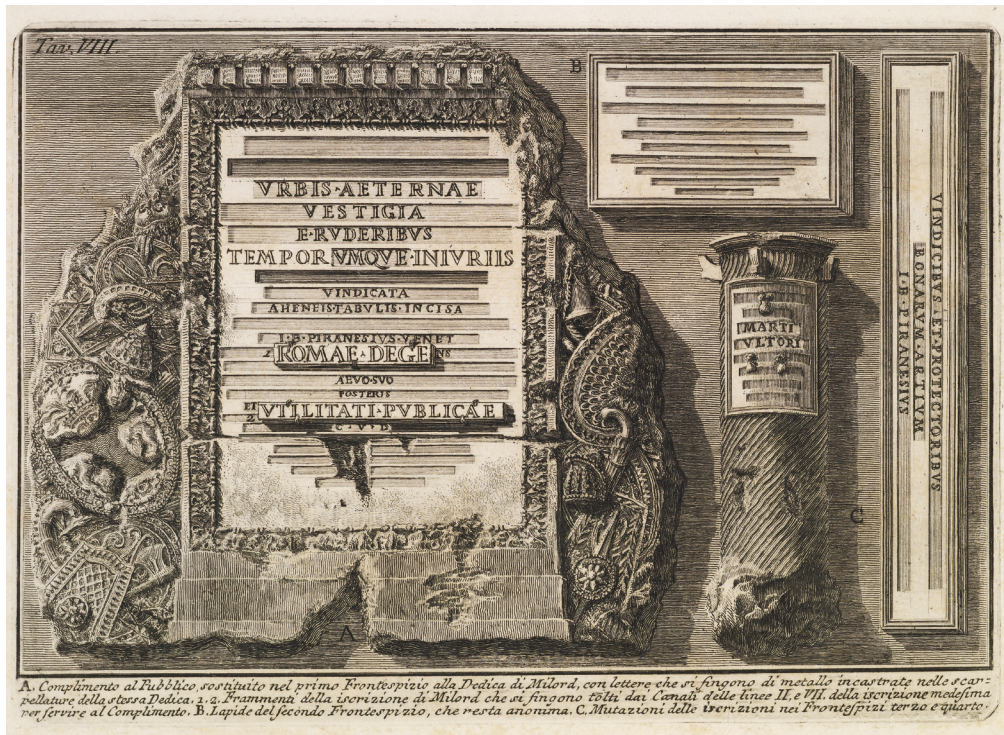 Tav. VIII.
VRBIS·AETERNAE
VESTIGIA
E·RVDERIBVS
TEMPORVMQVE·INIVRIIS
VINDICATA
AHENEIS·TABVLIS·INCISA
I·B·PIRANESIVS·VENET
2 ROMAE·DEGENS
AEVO·SVO
POSTERIS
ET
2 VTILITATI·PVBLICAE
C·V·D
A
B
MARTI
VLTORI
C
VINDICIBVS·ET·PROTECTORIBVS
BONARVM·ARTIVM
I·B·PIRANESIVS
A. Complimento al Pubblico, sostituito nel primo Frontespizio alla Dedica di Milord, con lettere che si fingono di metallo incastrate nelle scar-
pellature della stessa Dedica. 1. 2. Frammenti della iscrizione di Milord che si fingono tolti dai Canali delle linee II. e VII. della iscrizione medesima
per servire al Complimento. B. Lapide del secondo Frontespizio, che resta anonima. C. Mutazioni delle iscrizioni nei Frontespizi terzo e quarto.